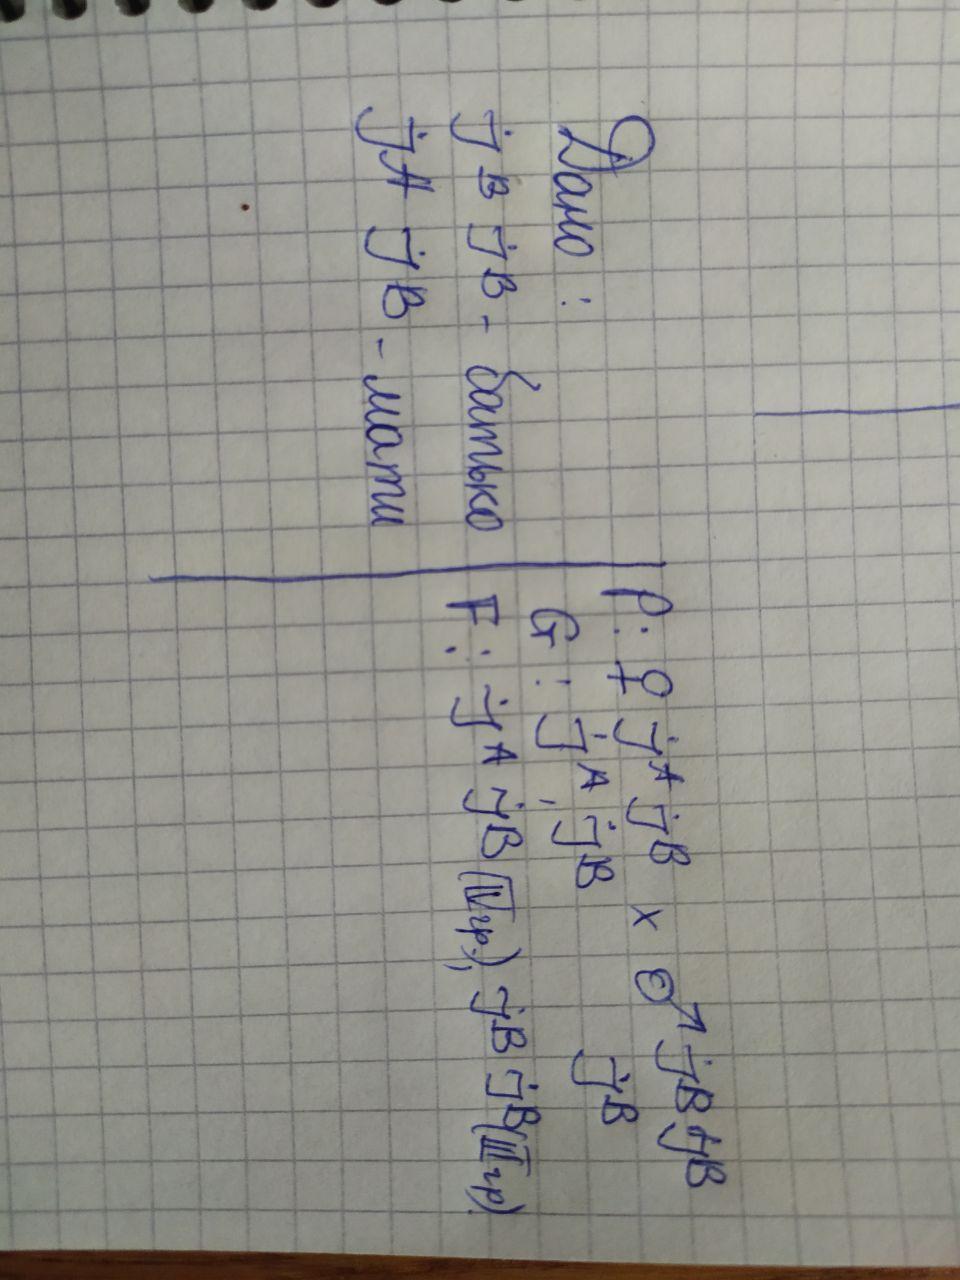 Дано:
j B j B - батько
j A j B - мати
P: ♀ j A j B x ♂ j B j B
G: j A, j B j B
F: j A j B (IV гр.), j B j B (III гр)